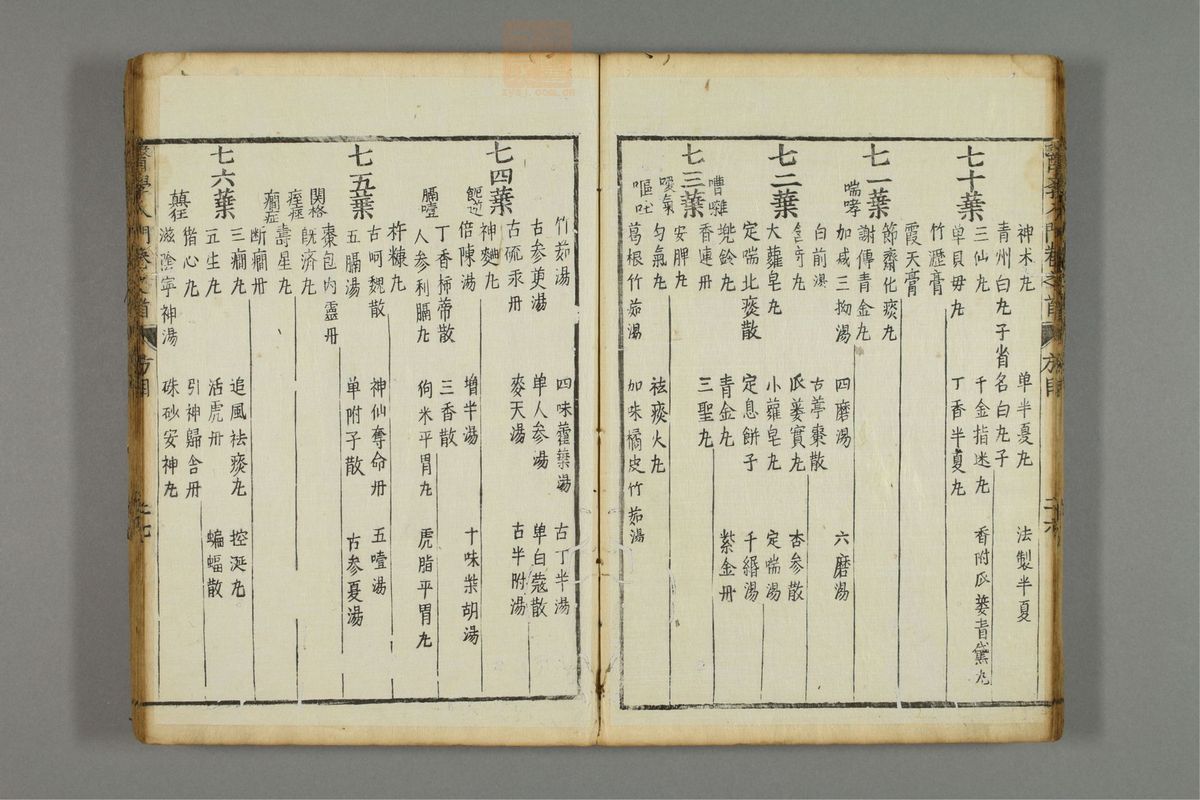 神朮丸 单半憂丸 法製半夏
七十葉 青州白丸子省名白丸子
三仙丸 千金指迷丸 香附瓜蔞青黛丸
单貝毋丸 丁香半夏丸
竹瀝膏
霞天膏
七一葉 節齋化痰丸
謝傳青金丸
喘哮 加减三拗湯 四磨湯 六磨湯
白前湯 古葶棗散
含奇丸 瓜蔞實丸 杏参散
七二葉 大蘿皂丸 小蘿皂丸 定喘湯
定喘北痰散 定息餅子 千緡湯
兠鈴丸 青金丸 紫金丹
嘈雜 香連丹 三聖丸
七三葉 安脾丸
噯氣 勻氣丸 祛痰火丸
嘔吐 葛根竹茹湯 加味橘皮竹茹湯
竹茹湯 四味藿葉湯 古丁半湯
古参萸湯 单人参湯 单白蔻散
七四葉 古硫汞丹 麥天湯 古半附湯
神麯丸
倍陳湯 增半湯 十味柴胡湯
丁香柿蒂散 三香散
膈噎 人参利膈丸 狗米平胃丸 虎脂平胃丸
杵糠丸
七五葉 古呵魏散 神仙奪命丹 五噎湯
五膈湯 单附子散 古参夏湯
棗包内靈丹
関格 既濟丸
痓痙 壽星丸
癇症 断癎丹
三癎丸 追風祛痰丸 控涎丸
七六葉 五生丸 活虎丹 蝙蝠散
猪心丸 引神歸舍丹
癲狂 滋陰寧神湯 硃砂安神丸
方目
zysj.com.cn